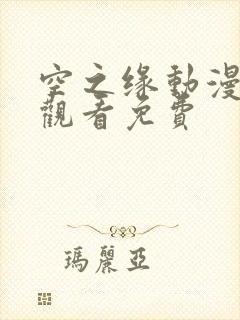 空之缘動漫
觀看免費
瑪麗亞